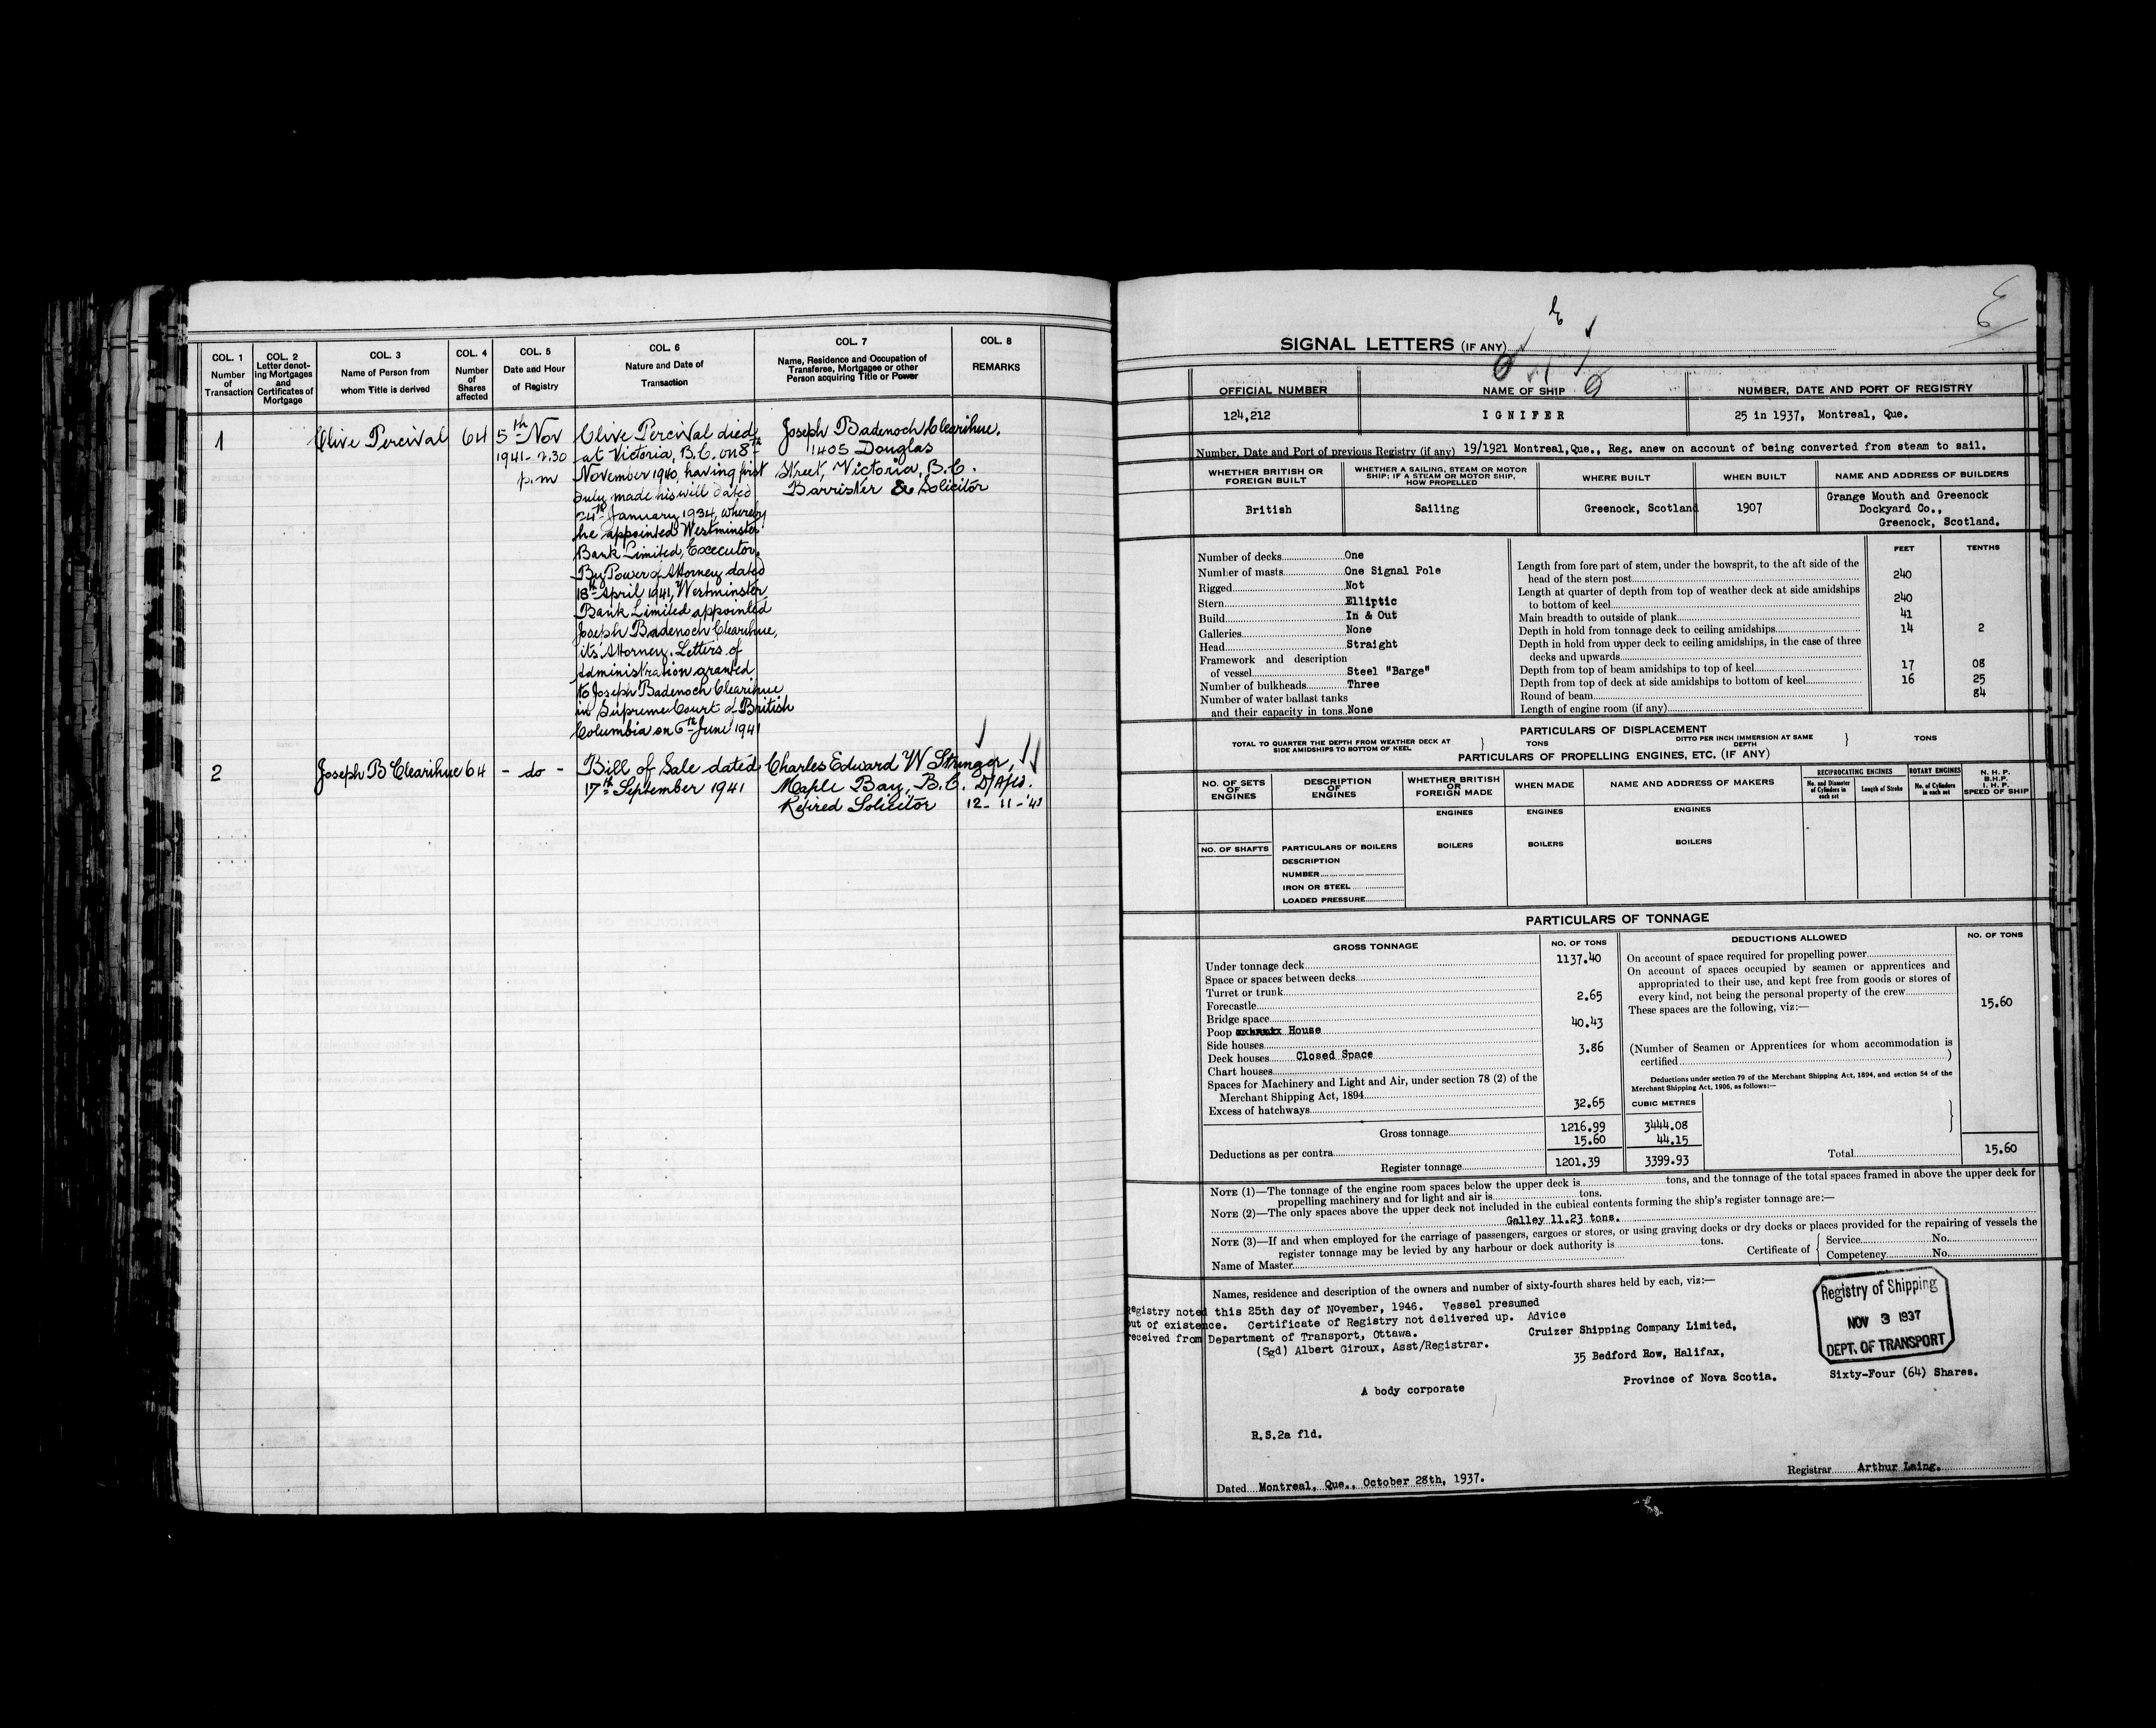 COL. 1
Number
of
Transaction
COL. 2
Letter denot-
ing Mortgages
and
Certificates of
Mortgage
COL. 3
Name of Person from
whom Title is derived
COL. 4
Number
of
Shares
affected
COL. 5
Date and Hour
of Registry
COL. 6
Nature and Date of
Transaction
COL. 7
Name, Residence and Occupation of
Transferee, Mortgagee or other
Person acquiring Title or Power
COL. 8
REMARKS
1
Clive Percival
64
5th Nov
1941 - 2.30
p.m
Clive Percival died
at Victoria, B.C. on 8th
November 1940, having first
duly made his will dated
January 1934, whereby
he appointed Westminster
Bank Limited, Executor.
By Power of Attorney dated
18th April 1941, Westminster
Bank Limited appointed
Joseph Badenoch Clearihue,
its Attorney. Letters of
Administration granted
to Joseph Badenoch Clearihue
in Supreme Court of British
Columbia on 6th June 1941
Joseph Badenoch Clearihue.
1405 Douglas
Street, Victoria, B.C.
Barrister & Solicitor
2
Joseph B Clearihue
64
- do -
Bill of Sale dated
17th September 1941
Charles Edward W Stringer,
Maple Bay, B.C.
Retired Solicitor
12-11-'41
SIGNAL LETTERS (IF ANY)
OFFICIAL NUMBER
NAME OF SHIP
NUMBER, DATE AND PORT OF REGISTRY
124,212
IGNIFER
25 in 1937, Montreal, Que.
Number, Date and Port of previous Registry (if any) 19/1921 Montreal,Que., Reg. anew on account of being converted from steam to sail.
WHETHER BRITISH OR
FOREIGN BUILT
WHETHER A SAILING, STEAM OR MOTOR
SHIP; IF A STEAM OR MOTOR SHIP,
HOW PROPELLED
WHERE BUILT
WHEN BUILT
NAME AND ADDRESS OF BUILDERS
British
Sailing
Greenock, Scotland
1907
Grange Mouth and Greenock
Dockyard Co.,
Greenock, Scotland.
Number of decks One
Number of masts One Signal Pole
Rigged Not
Stern Elliptic
Build In & Out
Galleries None
Head Straight
Framework and description
of vessel Steel "Barge"
Number of bulkheads Three
Number of water ballast tanks
and their capacity in tons None
FEET
TENTHS
Length from fore part of stem, under the bowsprit, to the aft side of the
head of the stern post 240
Length at quarter of depth from top of weather deck at side amidships
to bottom of keel 240
Main breadth to outside of plank 41
Depth in hold from tonnage deck to ceiling amidships 14 2
Depth in hold from upper deck to ceiling amidships, in the case of three
decks and upwards
Depth from top of beam amidships to top of keel 17 08
Depth from top of deck at side amidships to bottom of keel 16 25
Round of beam 84
Length of engine room (if any)
PARTICULARS OF DISPLACEMENT
TOTAL TO QUARTER THE DEPTH FROM WEATHER DECK AT
SIDE AMIDSHIPS TO BOTTOM OF KEEL
TONS
DITTO PER INCH IMMERSION AT SAME
DEPTH
TONS
PARTICULARS OF PROPELLING ENGINES, ETC. (IF ANY)
NO. OF SETS
OF
ENGINES
DESCRIPTION
OF
ENGINES
WHETHER BRITISH
OR
FOREIGN MADE
WHEN MADE
NAME AND ADDRESS OF MAKERS
RECIPROCATING ENGINES
No. and Diameter
of Cylinders in
each set
Length of Stroke
ROTARY ENGINES
No. of Cylinders
in each set
N. H. P.
B.H.P.
I. H. P.
SPEED OF SHIP
ENGINES
ENGINES
ENGINES
NO. OF SHAFTS
PARTICULARS OF BOILERS
DESCRIPTION
NUMBER
IRON OR STEEL
LOADED PRESSURE
BOILERS
BOILERS
BOILERS
PARTICULARS OF TONNAGE
GROSS TONNAGE
NO. OF TONS
DEDUCTIONS ALLOWED
NO. OF TONS
Under tonnage deck 1137.40
Space or spaces between decks
Turret or trunk
Forecastle 2.65
Bridge space
Poop House 40.43
Side houses
Deck houses Closed Space 3.86
Chart houses
Spaces for Machinery and Light and Air, under section 78 (2) of the
Merchant Shipping Act, 1894
Excess of hatchways 32.65
Gross tonnage 1216.99
Deductions as per contra 15.60
Register tonnage 1201.39
CUBIC METRES
3444.08
44.15
3399.93
On account of space required for propelling power
On account of spaces occupied by seamen or apprentices and
appropriated to their use, and kept free from goods or stores of
every kind, not being the personal property of the crew 15.60
These spaces are the following, viz:—
(Number of Seamen or Apprentices for whom accommodation is
certified )
Deductions under section 79 of the Merchant Shipping Act, 1894, and section 54 of the
Merchant Shipping Act, 1906, as follows:—
Total 15.60
NOTE (1)—The tonnage of the engine room spaces below the upper deck is tons, and the tonnage of the total spaces framed in above the upper deck for
propelling machinery and for light and air is tons.
NOTE (2)—The only spaces above the upper deck not included in the cubical contents forming the ship's register tonnage are:—
Galley 11.23 tons.
NOTE (3)—If and when employed for the carriage of passengers, cargoes or stores, or using graving docks or dry docks or places provided for the repairing of vessels the
register tonnage may be levied by any harbour or dock authority is tons.
Name of Master
Certificate of
Service No.
Competency No.
Names, residence and description of the owners and number of sixty-fourth shares held by each, viz:—
egistry noted this 25th day of November, 1946. Vessel presumed
out of existence. Certificate of Registry not delivered up. Advice
received from Department of Transport, Ottawa.
(Sgd) Albert Giroux, Asst/Registrar.
Cruizer Shipping Company Limited,
35 Bedford Row, Halifax,
Province of Nova Scotia.
A body corporate
Sixty-Four (64) Shares.
Registry of Shipping
NOV 3 1937
DEPT. OF TRANSPORT
R.S.2a fld.
Dated Montreal, Que., October 28th, 1937.
Registrar Arthur Laing.